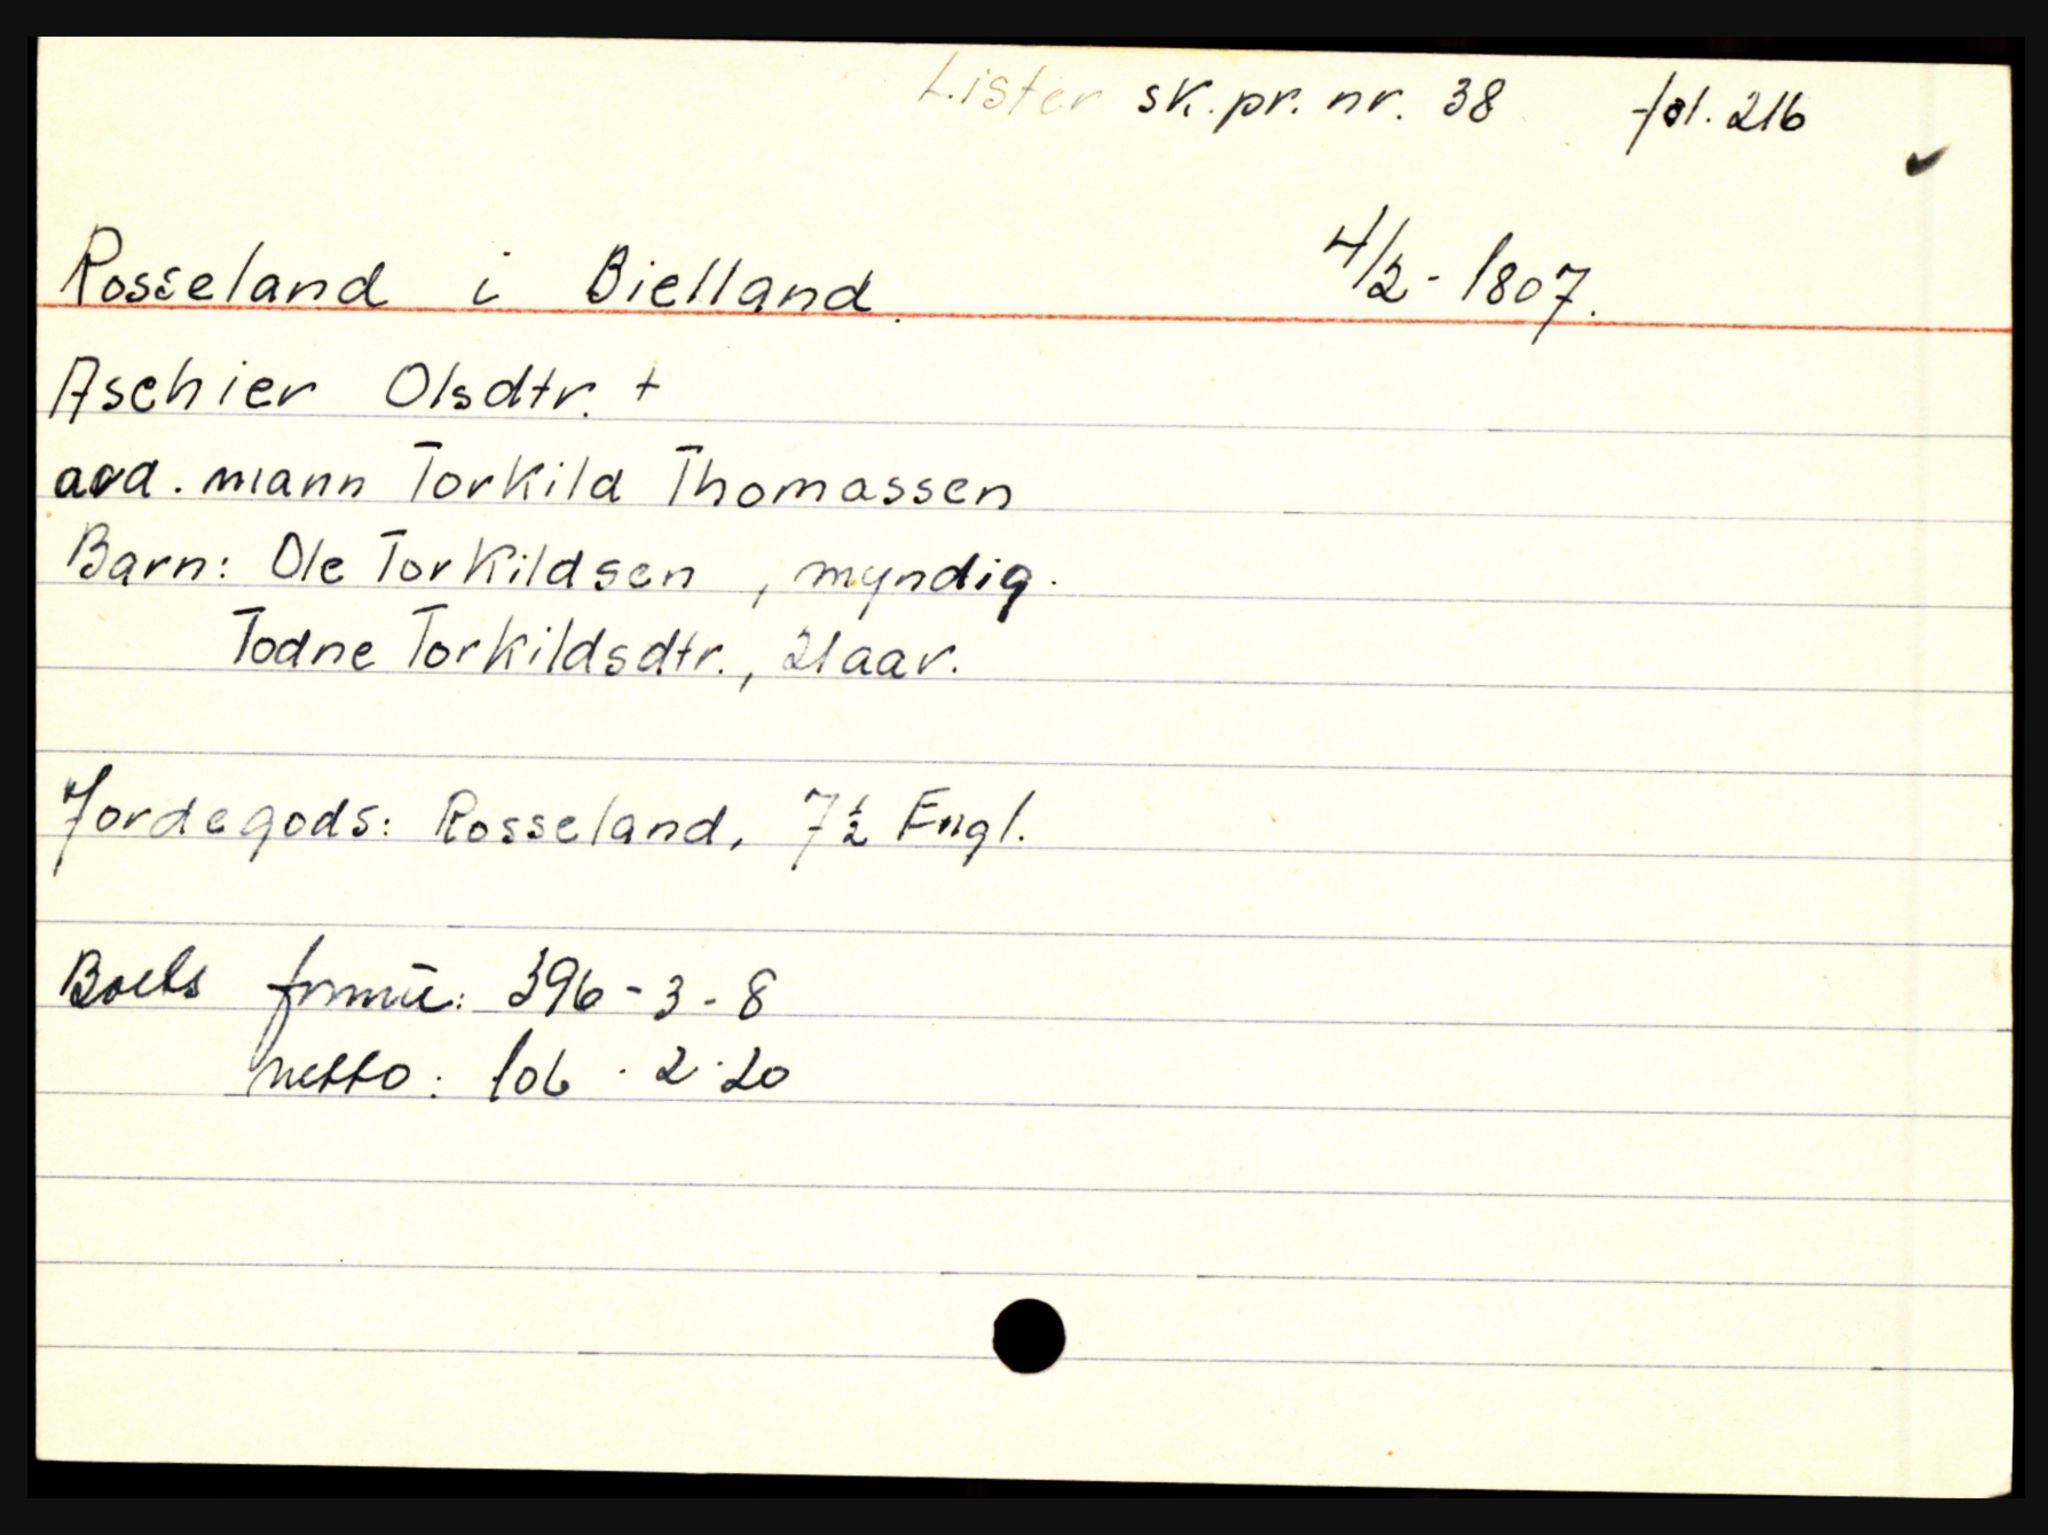 Lister sk.pr. nr. 38 fol. 216
Rosseland i Bielland. 4/2 - 1807.
Aschier Olsdtr. +
avd. mann Torkild Thomassen
Barn: Ole Torkildsen, myndig.
Todne Torkildsdtr., 21 aar.
Jordegods: Rosseland, 7 1/2 Engl.
Boets formū: 396 - 3 - 8
netto: 106 - 2 - 20